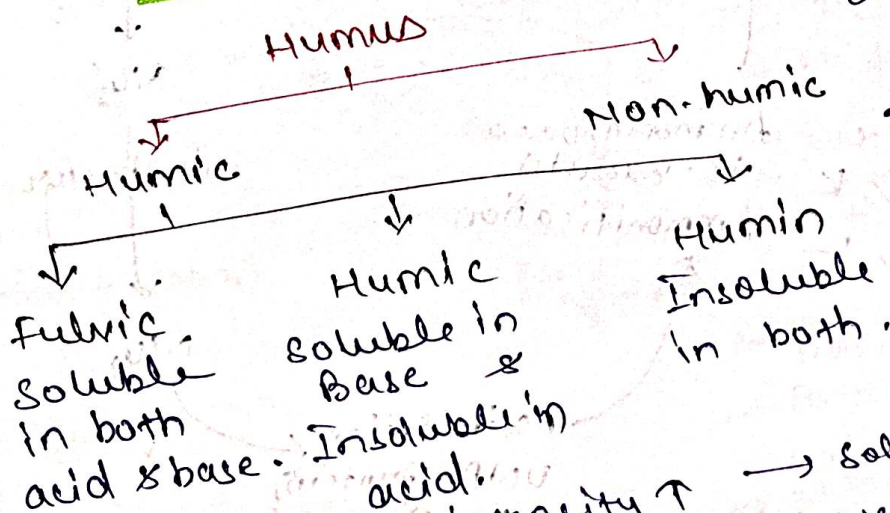 Humus
Humic
Non-humic
Fulvic
Soluble
in both
acid & base.
Humic
soluble in
Base &
Insoluble in
acid.
Humin
Insoluble
in both.
↑ → Sol